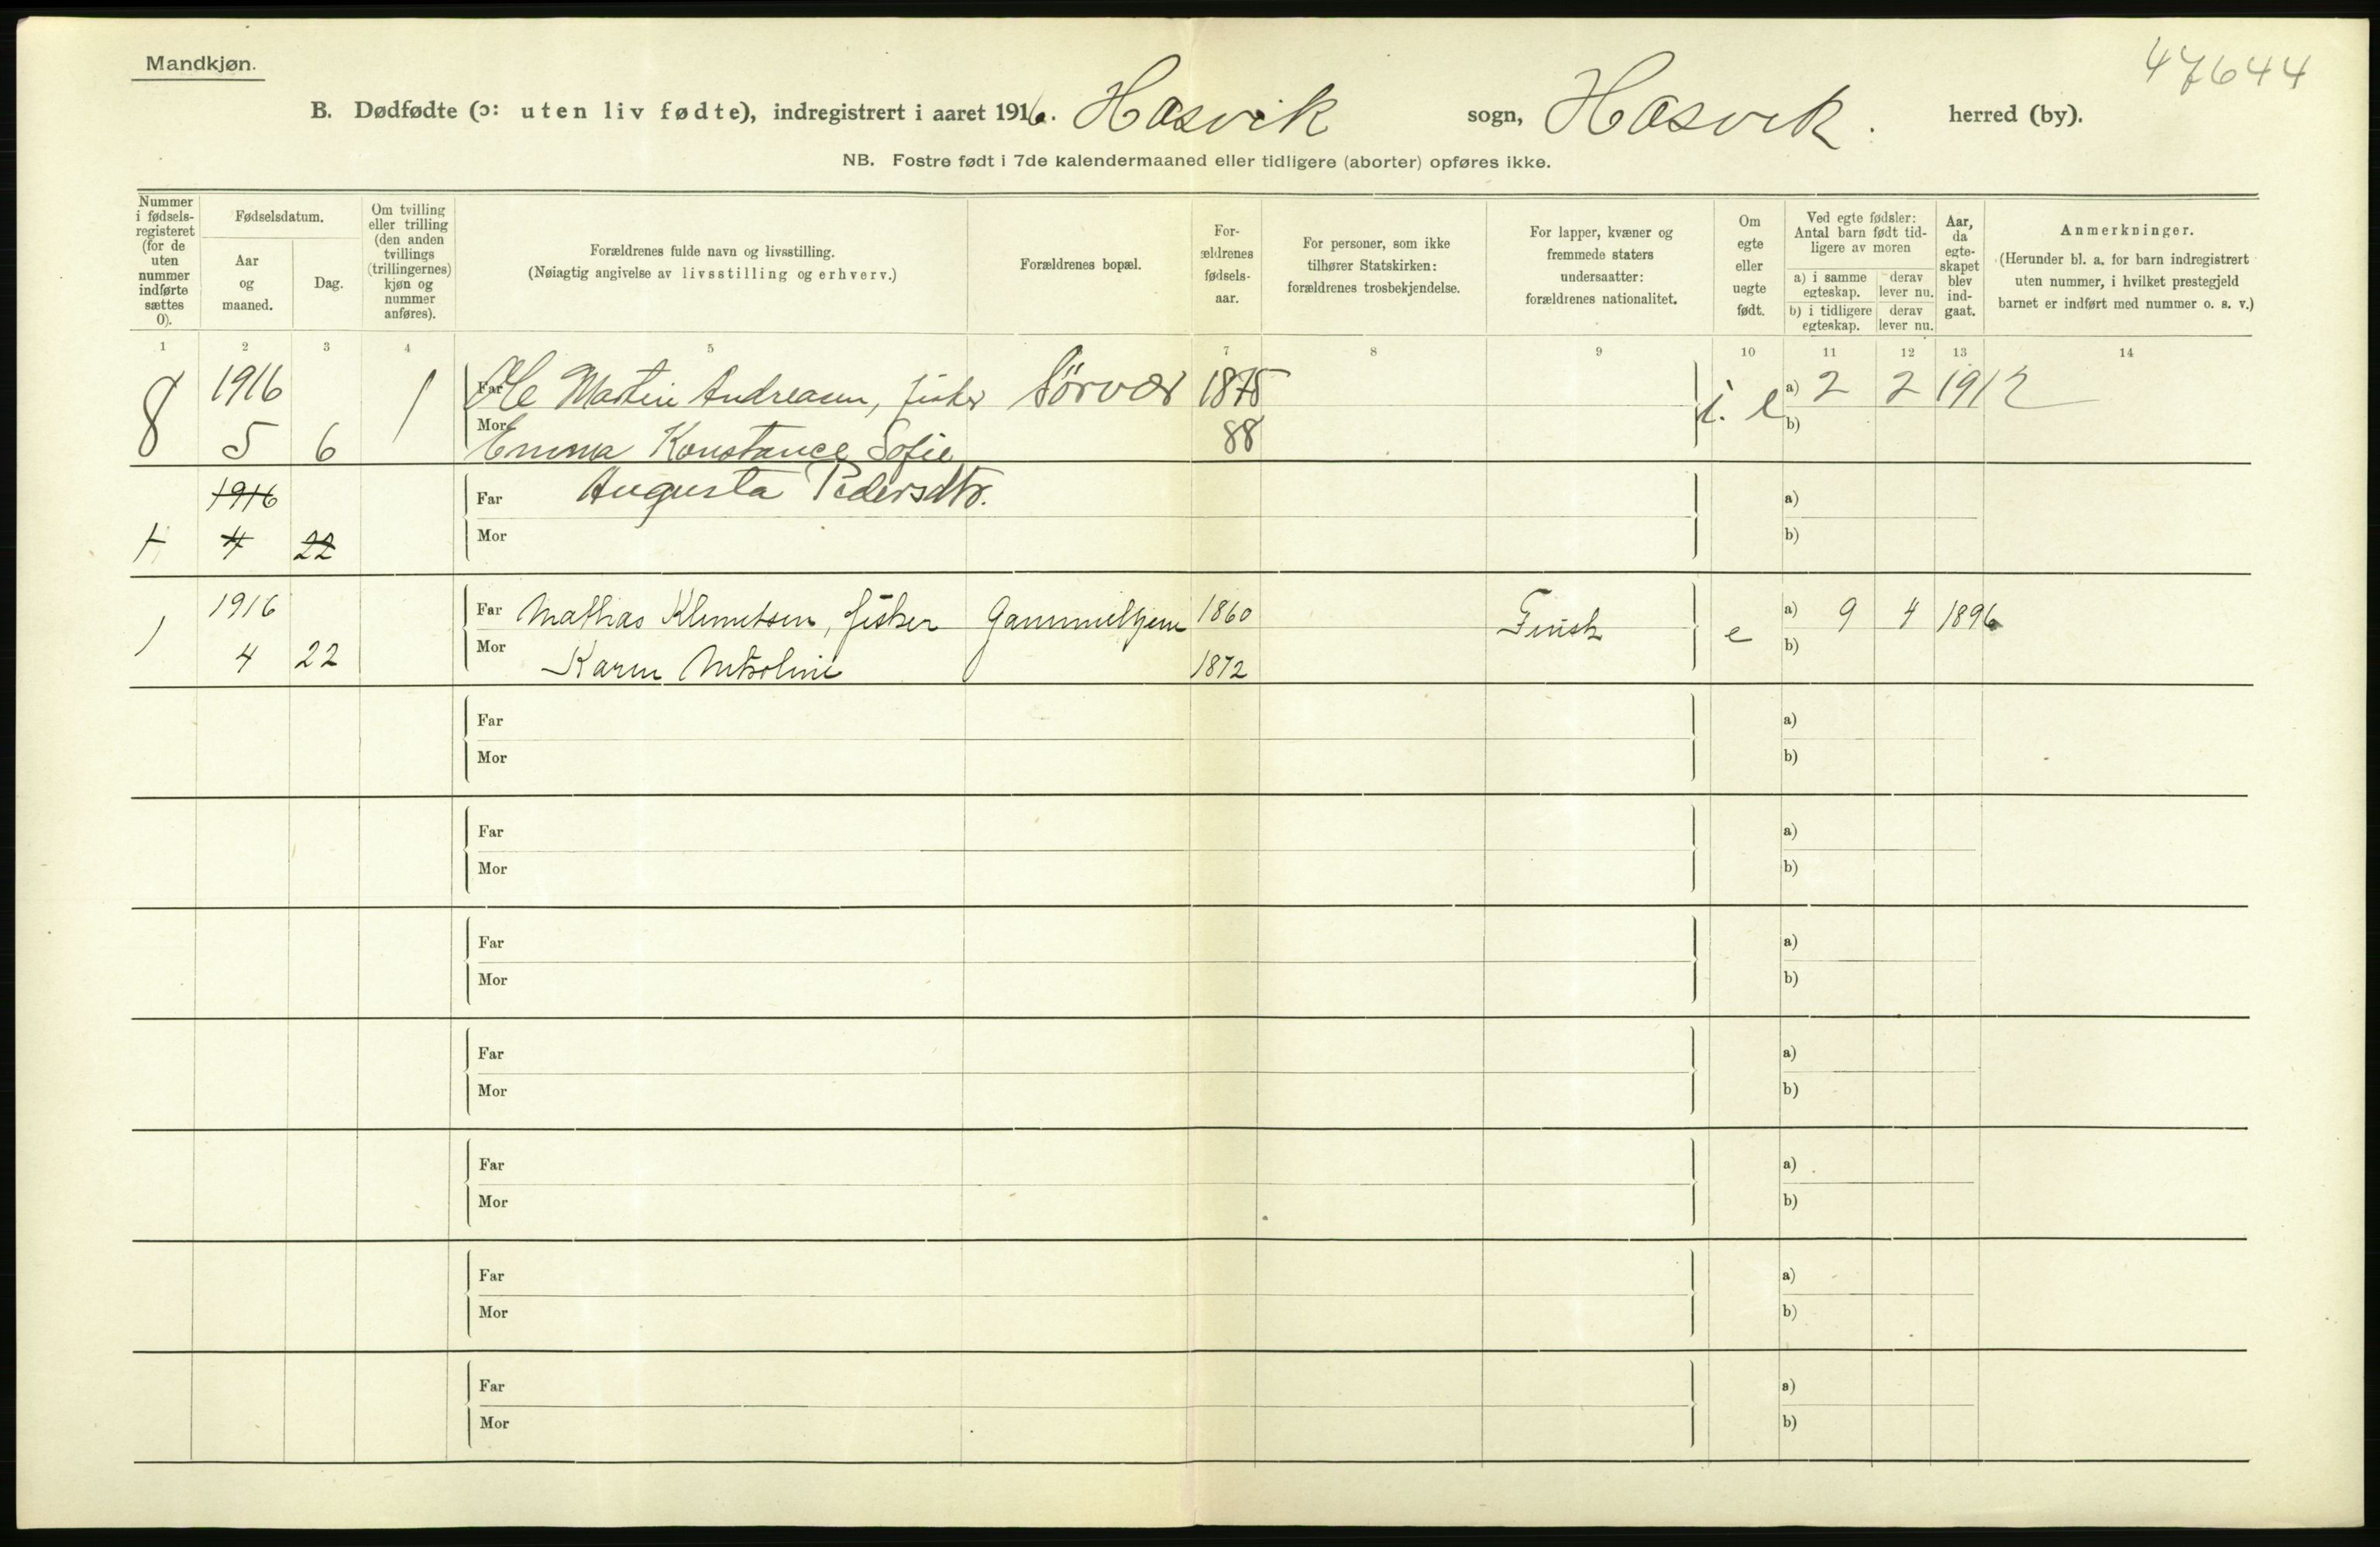 Mandkjøn.
47644
B. Dødfødte (ɔ: uten liv fødte), indregistrert i aaret 1916. Hasvik sogn, Hasvik. herred (by).
NB. Fostre født i 7de kalendermaaned eller tidligere (aborter) opføres ikke.
Nummer i fødsels- registeret (for de uten nummer indførte sættes 0).
Fødselsdatum.
Aar og maaned.
Dag.
Om tvilling eller trilling (den anden tvillings (trillingernes) kjøn og nummer anføres).
Forældrenes fulde navn og livsstilling.
(Nøiagtig angivelse av livsstilling og erhverv.)
Forældrenes bopæl.
For- ældrenes fødsels- aar.
For personer, som ikke tilhører Statskirken: forældrenes trosbekjendelse.
For lapper, kvæner og fremmede staters undersaatter: forældrenes nationalitet.
Om egte eller uegte født.
Ved egte fødsler: Antal barn født tid- ligere av moren
a) i samme egteskap.
derav lever nu.
b) i tidligere egteskap.
derav lever nu.
Aar, da egte- skapet blev ind- gaat.
Anmerkninger.
(Herunder bl. a. for barn indregistrert uten nummer, i hvilket prestegjeld barnet er indført med nummer o. s. v.)
1 2 3 4 5 7 8 9 10 11 12 13 14
8 1916 1 Far Ole Martin Andreasen, fisker Sörvær 1875 i. e a) 2 2 1912
5 6 Mor Emma Konstance Sofie 88 b)
1916 Far Augusta Pedersdtr. a)
4 22 Mor b)
1 1916 Far Mathias Klemetsen, fisker Gammelhjem 1860 Finsk e a) 9 4 1896
4 22 Mor Karen 1872 b)
Far a)
Mor b)
Far a)
Mor b)
Far a)
Mor b)
Far a)
Mor b)
Far a)
Mor b)
Far a)
Mor b)
Far a)
Mor b)